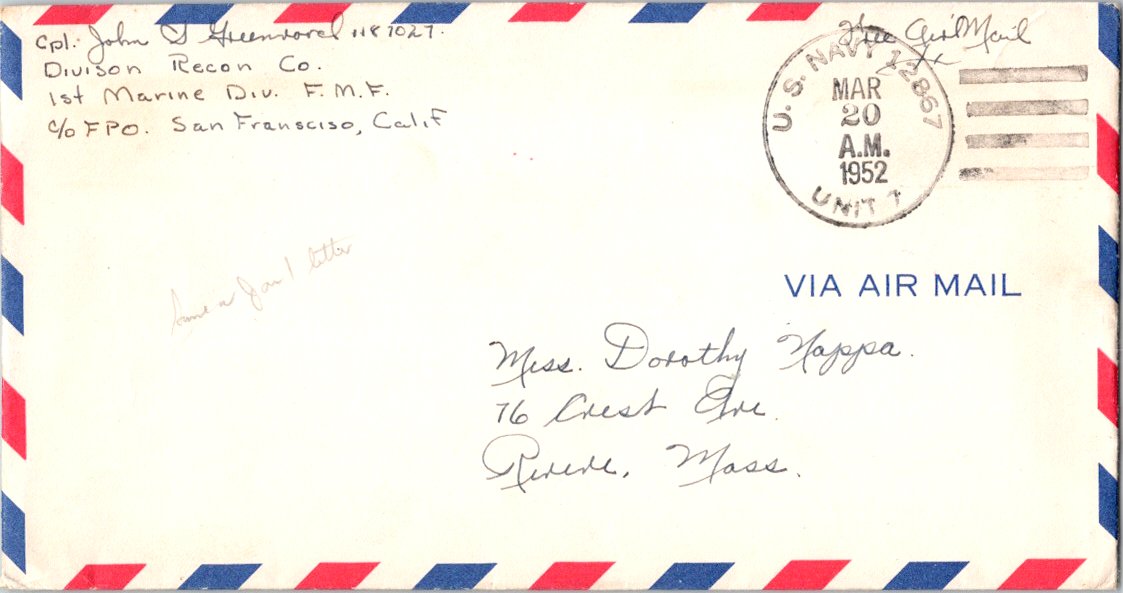 Cpl. John 1187027.
Divison Recon Co.
1st Marine Div. F.M.F.
c/o FPO. San Fransciso, Calif
Free Air Mail
U.S. NAVY 12867
MAR
20
A.M.
1952
UNIT 1
letter
VIA AIR MAIL
Miss. Dorothy Nappa.
76 Crest Ave.
Revere, Mass.